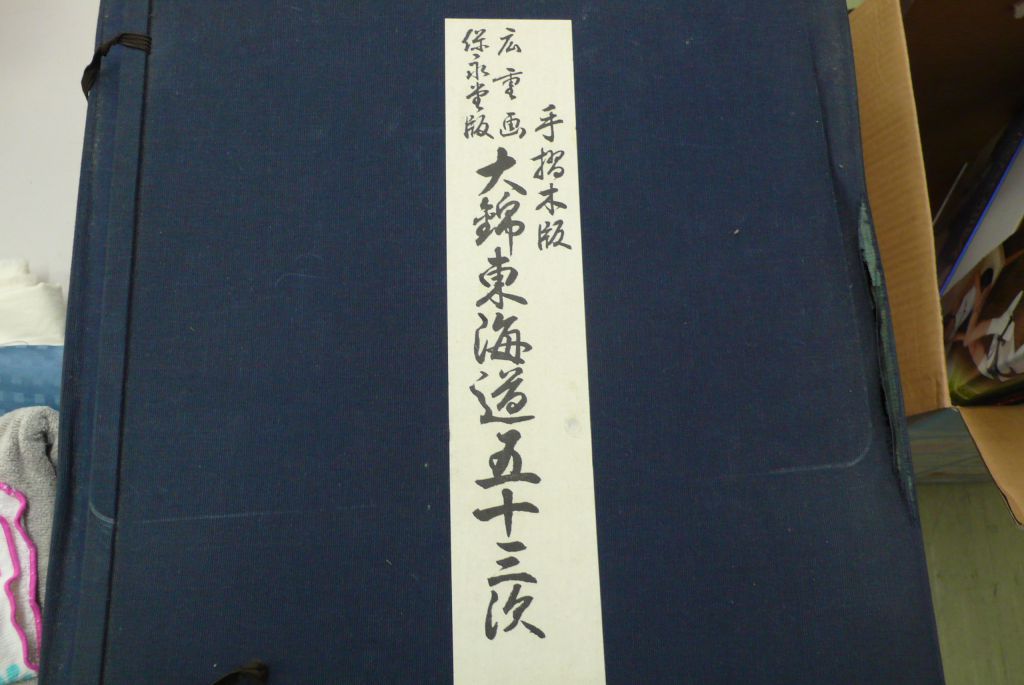 手摺木版
広重画
保永堂版
大錦東海道五十三次